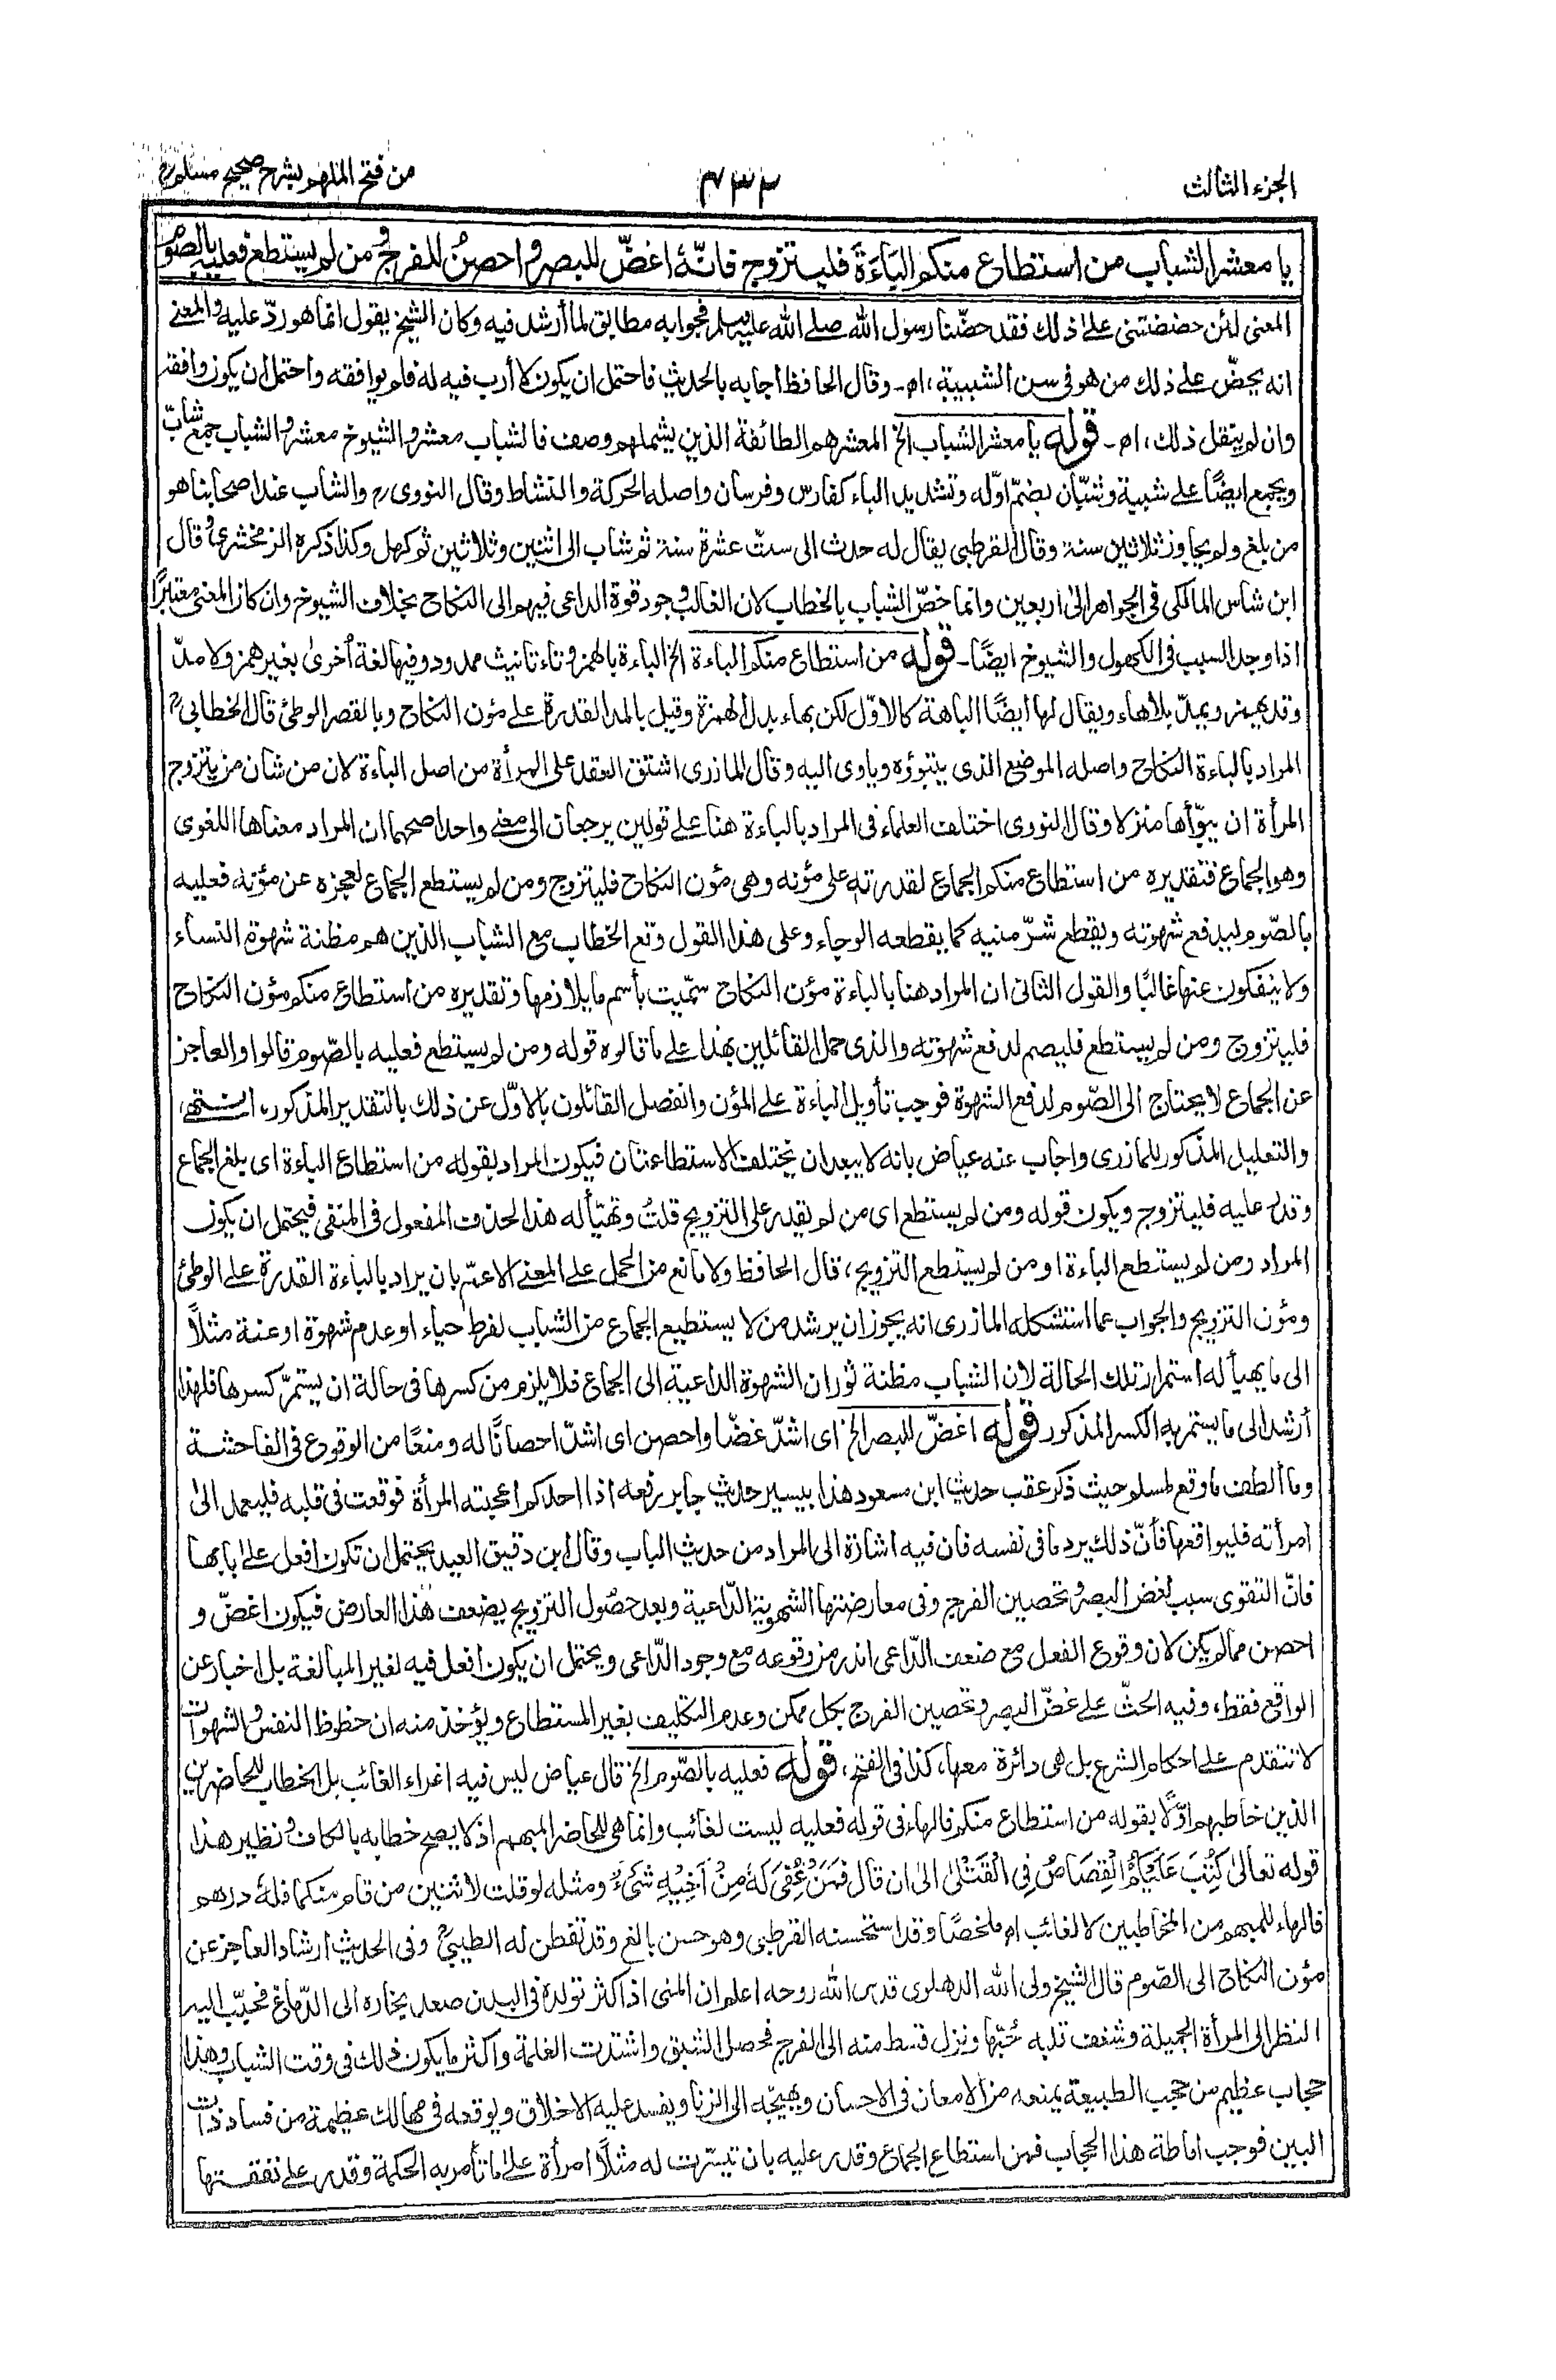 الجزء الثالث
٤٣٢
من فتح الملهم بشرح صحيح مسلم
يا معشر الشباب من استطاع منكم البَاءَةَ فليتزوج فانّهٗ اغضّ للبصر و احصنُ للفرج و من لم يستطع فعليه بالصّوم
المعنى لئن حضضتنى على ذلك فقد حضّنا رسول الله صلى الله عليه وسلم فجوابه مطابق لما أرشد فيه وكان الشيخ يقول انما هو ردّ عليه والمعنى
انه يحضّ على ذلك من هو فى سن الشبيبة، اه- وقال الحافظ اجابه بالحديث فاحتمل ان يكون لا أرب فيه له فلم يوافقه واحتمل ان يكون وافقه
وان لم ينقل ذلك، اه- قوله يا معشر الشباب الخ المعشر هم الطائفة الذين يشملهم وصف فالشباب معشر والشيوخ معشر والشباب جمع شابّ
ويجمع ايضًا على شببة وشبّان بضمّ اوّله وتشديد الباء كفارس وفرسان واصله الحركة والنشاط وقال النووى رح والشاب عند اصحابنا هو
من بلغ ولم يجاوز ثلاثين سنة وقال القرطبى يقال له حدث الى ستّ عشرة سنة ثم شاب الى اثنين وثلاثين ثم كهل وكذا ذكره الزمخشرى وقال
ابن شاس المالكى فى الجواهر الى اربعين وانما خصّ الشباب بالخطاب لان الغالب وجود قوة الداعى فيهم الى النكاح بخلاف الشيوخ وان كان المعنى معتبرًا
اذا وجد السبب فى الكهول والشيوخ ايضًا- قوله من استطاع منكم الباءة الخ الباءة بالهمز وتاء تانيث ممدود وفيها لغة أخرى بغير همز ولا مدّ
وقد يهمز ويمدّ بلا هاء ويقال لها ايضًا الباهة كالاوّل لكن بهاء بدل الهمزة وقيل بالمد القدرة على مؤن النكاح وبالقصر الوطئ قال الخطابى رح
المراد بالباءة النكاح واصله الموضع الذى يتبوّؤه وياوى اليه وقال المازرى اشتق العقد على المرأة من اصل الباءة لان من شان من يتزوج
المرأة ان يبوّأها منزلا وقال النووى اختلف العلماء فى المراد بالباءة هنا على قولين يرجعان الى معنى واحد اصحهما ان المراد معناها اللغوى
وهو الجماع فتقديره من استطاع منكم الجماع لقدرته على مؤنه وهى مؤن النكاح فليتزوج ومن لم يستطع الجماع لعجزه عن مؤنه فعليه
بالصّوم ليدفع شهوته ويقطع شرّ منيه كما يقطعه الوجاء وعلى هذا القول وقع الخطاب مع الشباب الذين هم مظنة شهوة النساء
ولا ينفكون عنها غالبًا والقول الثانى ان المراد هنا بالباءة مؤن النكاح سمّيت بأسم ما يلازمها وتقديره من استطاع منكم مؤن النكاح
فليتزوج ومن لم يستطع فليصم لدفع شهوته والذى حمل القائلين بهذا على ما قالوه قوله ومن لم يستطع فعليه بالصّوم قالوا والعاجز
عن الجماع لا يحتاج الى الصّوم لدفع الشهوة فوجب تأويل الباءة على المؤن وانفصل القائلون بالاوّل عن ذلك بالتقدير المذكور، انتهى
والتعليل المذكور للمازرى واجاب عنه عياض بانه لا يبعد ان تختلف الاستطاعتان فيكون المراد بقوله من استطاع الباءة اى بلغ الجماع
وقدر عليه فليتزوج ويكون قوله ومن لم يستطع اى من لم يقدر على التزويج قلتُ وتهيّأ له هذا لحذف المفعول فى المنفى فيحتمل ان يكون
المراد ومن لم يستطع الباءة او من لم يستطع التزويج، قال الحافظ ولا مانع من الحمل على المعنى الاعمّ بان يراد بالباءة القدرة على الوطئ
ومؤن التزويج والجواب عما استشكله المازرى انه يجوز ان يرشد من لا يستطيع الجماع من الشباب لفرط حياء او عدم شهوة او عنة مثلًا
الى ما يهيأ له استمرار تلك الحالة لان الشباب مظنة ثوران الشهوة الداعية الى الجماع فلا يلزم من كسرها فى حالة ان يستمرّ كسرها فلهذا
أرشد الى ما يستمر به الكسر المذكور قوله اغضّ للبصر الخ اى اشدّ غضّا واحصن اى اشدّ احصانًا له ومنعًا من الوقوع فى الفاحشة
وما ألطف ما وقع لمسلم حيث ذكر عقب حديث ابن مسعود هذا بيسير حديث جابر رفعه اذا احدكم اعجبته المرأة فوقعت فى قلبه فليعمد الى
امرأته فليواقعها فأنّ ذلك يرد ما فى نفسه فان فيه اشارة الى المراد من حديث الباب وقال ابن دقيق العيد يحتمل ان تكون افعل على بابها
فانّ التقوى سبب لغض البصر وتحصين الفرج وفى معارضتها الشهوة الدّاعية وبعد حصول التزويج يضعف هذا العارض فيكون اغضّ و
احصن مما لم يكن لان وقوع الفعل مع ضعف الدّاعى اندر من وقوعه مع وجود الدّاعى ويحتمل ان يكون افعل فيه لغير المبالغة بل اخبار عن
الواقع فقط، وفيه الحثّ على غضّ البصر وتحصين الفرج بكل ممكن وعدم التكليف بغير المستطاع ويؤخذ منه ان حظوظ النفس والشهوات
لا تتقدم على احكام الشرع بل هى دائرة معها، كذا فى الفتح، قوله فعليه بالصّوم الخ قال عياض ليس فيه اغراء الغائب بل الخطاب للحاضرين
الذين خاطبهم اوّلًا بقوله من استطاع منكم فالهاء فى قوله فعليه ليست لغائب وانما هى للحاضر المبهم اذ لا يصح خطابه بالكاف ونظير هذا
قوله تعالى كُتِبَ عَلَيْكُمُ الْقِصَاصُ فِى الْقَتْلٰى الى ان قال فَمَنْ عُفِىَ لَهٗ مِنْ اَخِيْهِ شَىْءٌ ومثله لو قلت لاثنين من قام منكما فلهٗ درهم
فالهاء للمبهم من المخاطبين لا لغائب اه ملخصًا وقد استحسنه القرطبى وهو حسن بالغ وقد تفطن له الطيبىؒ وفى الحديث ارشاد العاجز عن
مؤن النكاح الى الصّوم قال الشيخ ولى الله الدهلوى قدس الله روحه اعلم ان المنى اذا كثر تولده فى البدن صعد بخاره الى الدّماغ فحبّب اليه
النظر الى المرأة الجميلة وشغف قلبه حُبّها ونزل قسط منه الى الفرج فحصل الشبق واشتدت الغلمة واكثر ما يكون ذلك فى وقت الشباب وهذا
حجاب عظيم من حجب الطبيعة يمنعه من الامعان فى الاحسان ويهيّجه الى الزنا ويفسد عليه الاخلاق ويوقعه فى مهالك عظيمة من فساد ذات
البين فوجب اماطة هذا الحجاب فمن استطاع الجماع وقدر عليه بان تيسّرت له مثلًا امرأة على ما تأمر به الحكمة وقدر على نفقتها